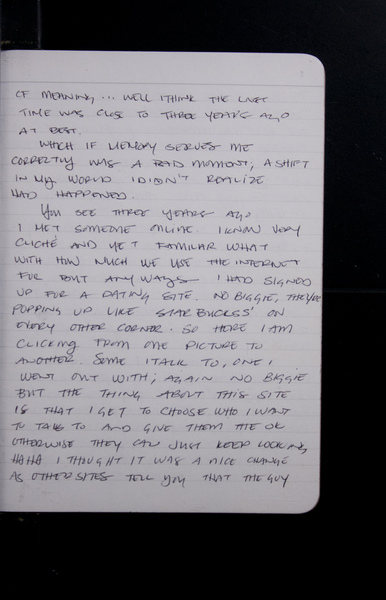 OF MEANING... WELL I THINK THE LAST
TIME WAS CLOSE TO THREE YEARS AGO
AT BEST.
WHICH IF MEMORY SERVES ME
CORRECTLY WAS A BAD MOMENT, A SHIFT
IN MY WORLD I DIDN'T REALIZE
HAD HAPPENED.
YOU SEE THREE YEARS AGO
I MET SOMEONE ONLINE. I KNOW VERY
CLICHÉ AND YET FAMILIAR WHAT
WITH HOW MUCH WE USE THE INTERNET
FOR BUT ANYWAYS I HAD SIGNED
UP FOR A DATING SITE. NO BIGGIE, THEY'RE
POPPING UP LIKE STARBUCKS' ON
EVERY OTHER CORNER. SO HERE I AM
CLICKING FROM ONE PICTURE TO
ANOTHER. SOME I TALK TO, ONE I
WENT OUT WITH; AGAIN NO BIGGIE
BUT THE THING ABOUT THIS SITE
IS THAT I GET TO CHOOSE WHO I WANT
TO TALK TO AND GIVE THEM THE OK
OTHERWISE THEY CAN JUST KEEP LOOKING
HAHA I THOUGHT IT WAS A NICE CHANGE
AS OTHER SITES TELL YOU THAT THE GUY